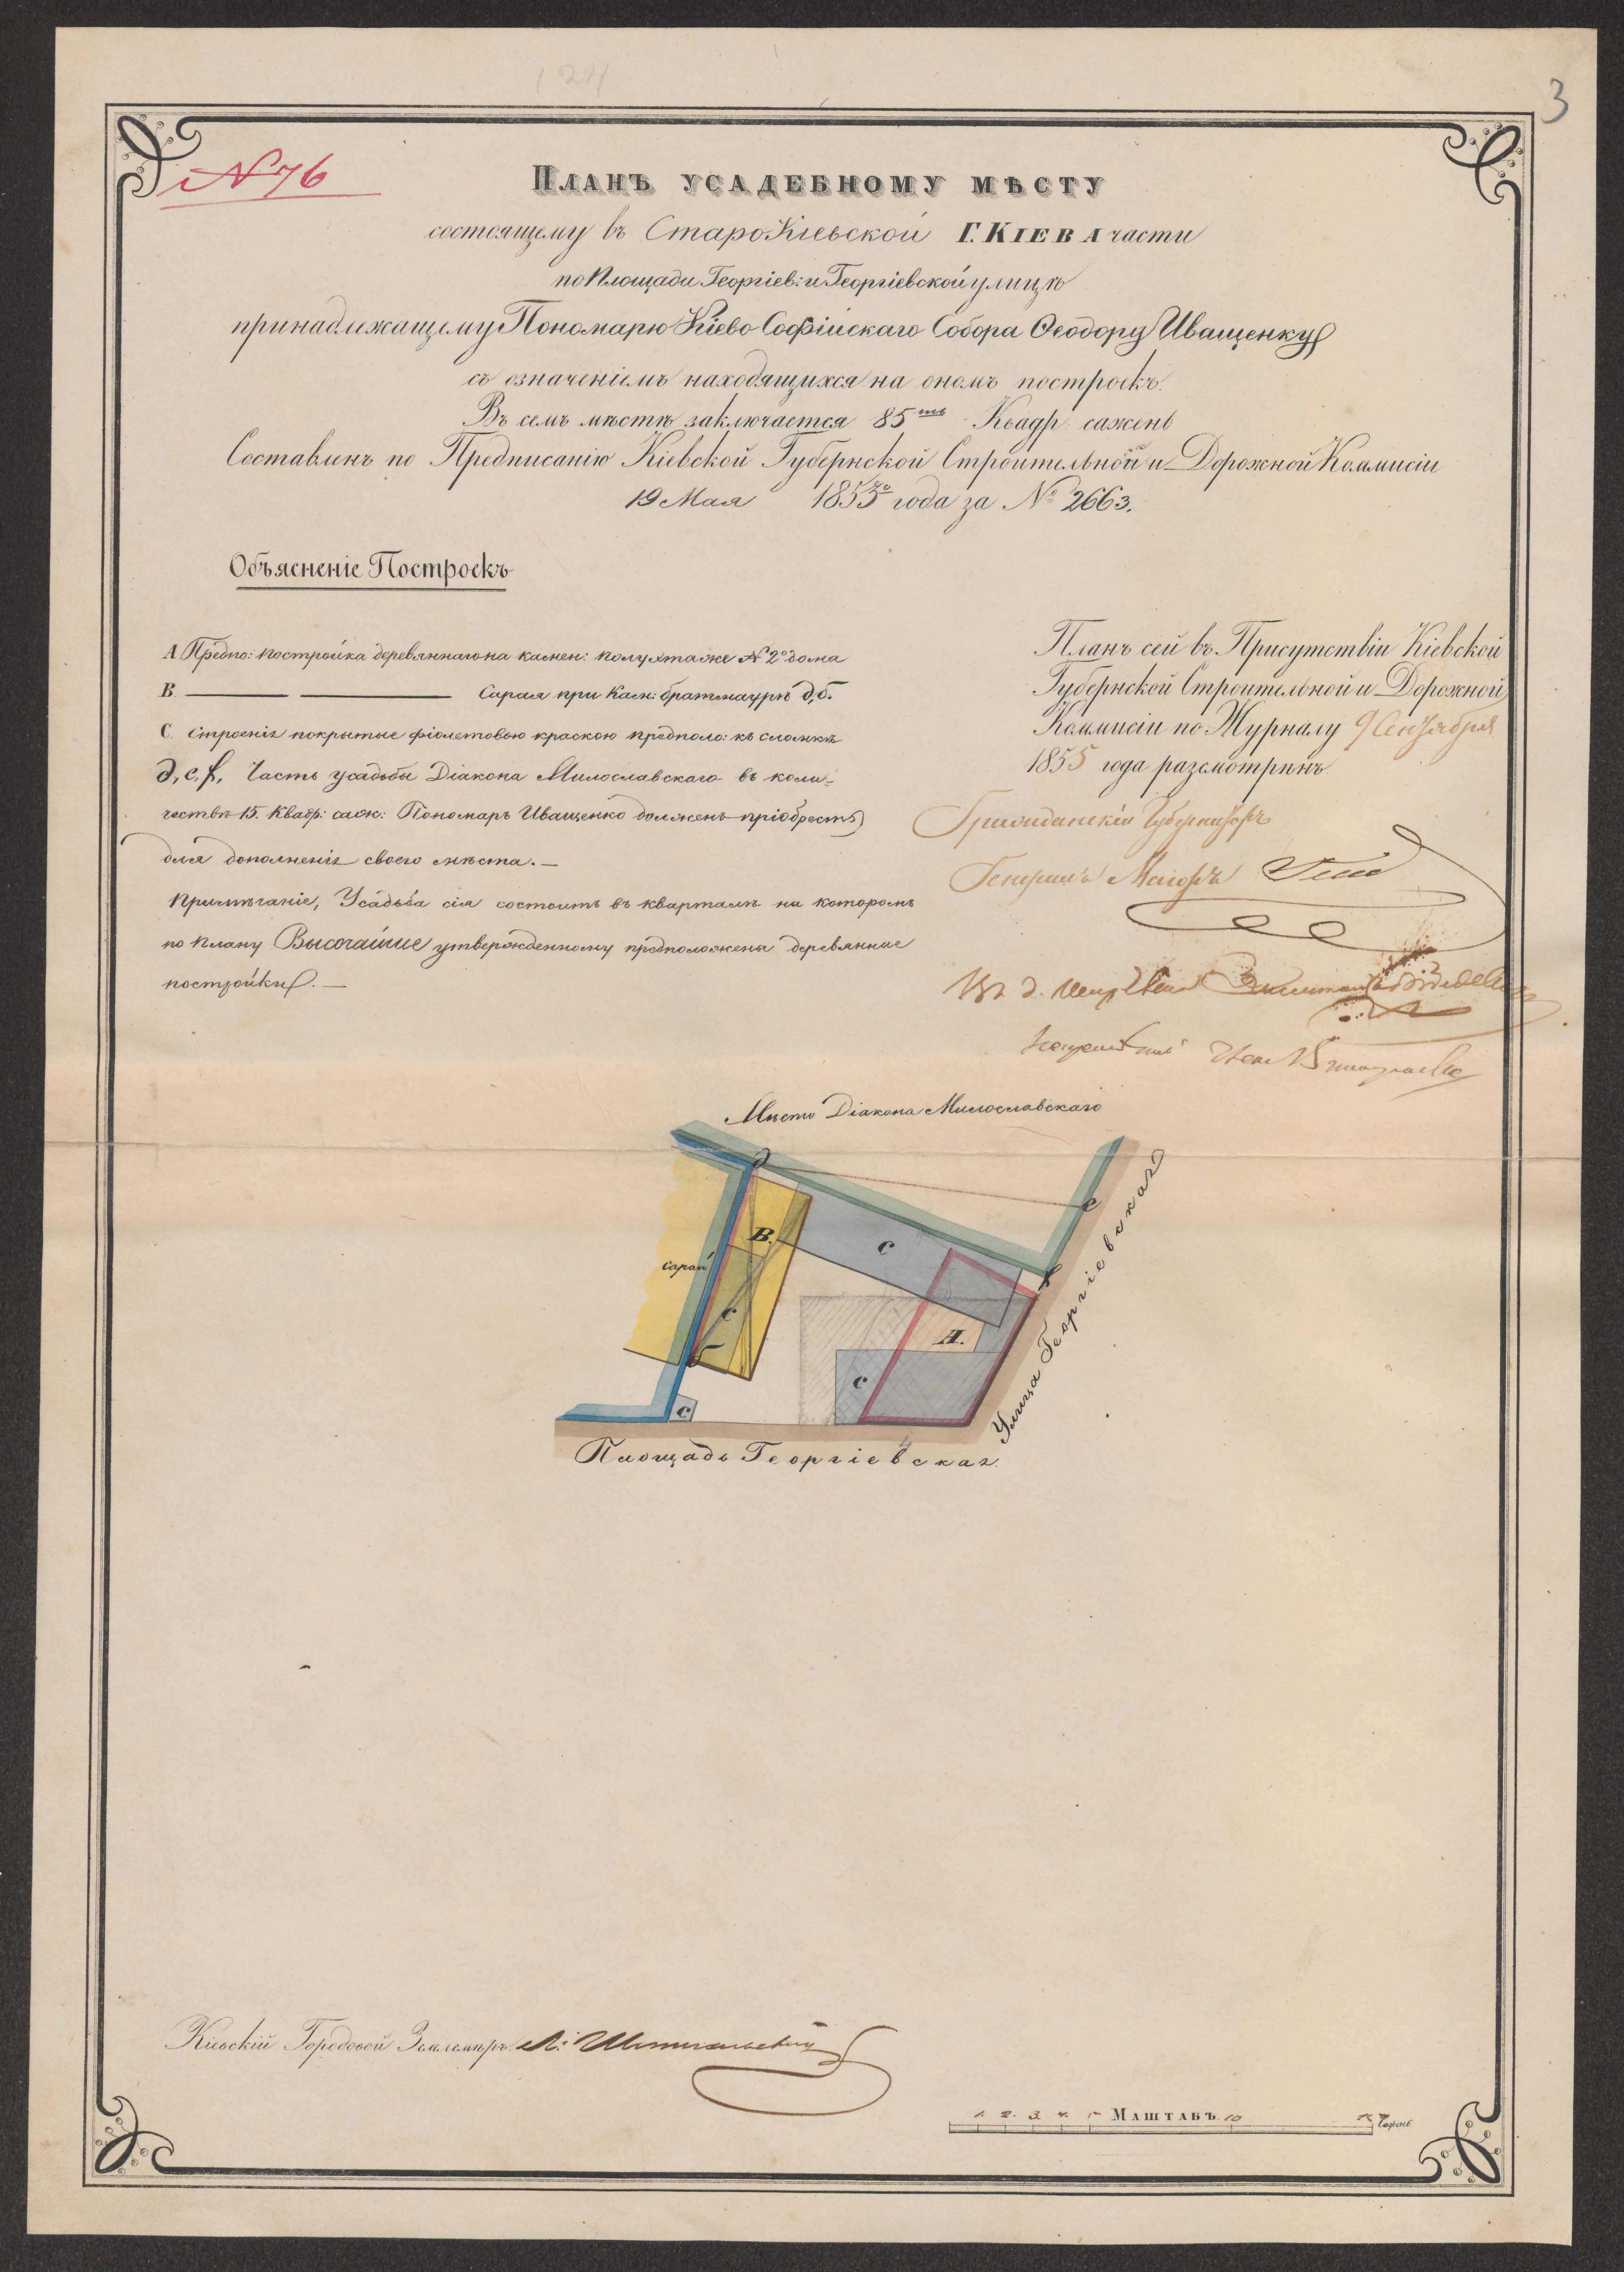 3
N 76
ПЛАНЪ УСАДЕБНОМУ МѢСТУ
состоящему въ СтароКіевской Г. КІЕВА части
по Площади Георгіев: и Георгіевской улицѣ
принадлежащему Пономарю Кіево Софійскаго Собора Ѳеодору Иващенку
съ означеніемъ находящихся на ономъ построекъ.
Въ семъ мѣстѣ заключается 85ть Квадр: сажень
Составленъ по Предписанію Кіевской Губернской Строительной и Дорожной Коммисіи
19 Мая 1855го года за № 2663.
Объясненіе Построекъ
А Предпо: постройка деревяннаго на камен: полуэтаже № 2º дома
В. Сарая при Камен: братмаурѣ д, б.
С. Строенія покрытые фіолетовою краскою предполо: къ сломкѣ
д, е, f, Часть усадьбы Діакона Милославскаго въ коли-
чествѣ 15. Квадр: саж: Пономарь Иващенко долженъ пріобресть
для дополненія своего мѣста. —
Примѣчаніе, Усадьба сія состоитъ въ кварталѣ на которомъ
по Плану Высочайше утвержденному предположены деревянные
постройки. —
Планъ сей въ Присутствіи Кіевской
Губернской Строительной и Дорожной
Коммисіи по Журналу 9 Сентября
1855 года разсмотрѣнъ
Гражданскій Губернаторъ
Генералъ Маіоръ
Мѣсто Діакона Милославскаго
д
е
В.
С
сарай
f
С
А.
б
С
С
Улица Георгіевская
Площадь Георгіевская.
Кіевскій Городовой Землемѣръ
1. 2. 3. 4. 5 МАШТАБЪ 10 15 Сажень